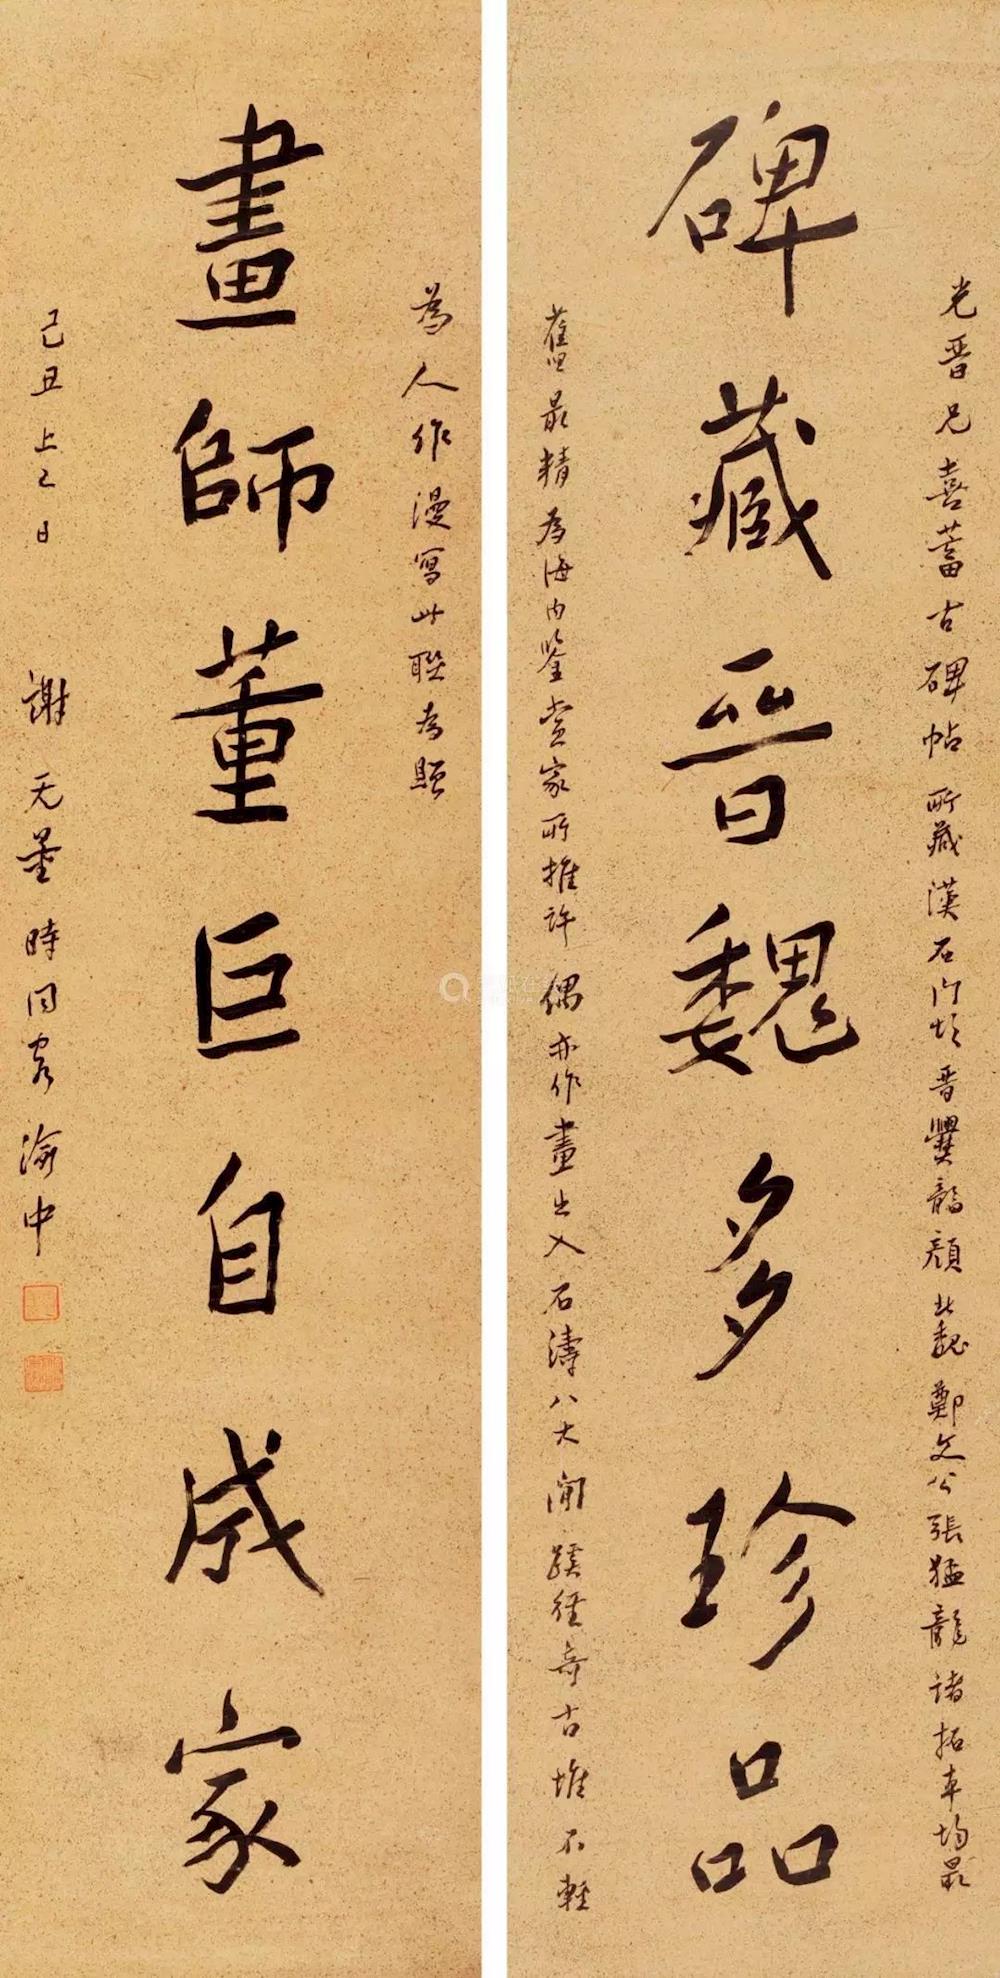 光晋兄喜蓄古碑帖所藏漢石门頌晋爨龍顔北魏鄭文公張猛龍諸拓本均最
碑藏晋魏多珍品
舊最精為海内鉴賞家所推許偶亦作畫出入石濤八大閒蹊徑奇古惟不輕
為人作漫寫此聯為贈
畫師董巨自成家
己丑上巳日 謝无量時同客渝中